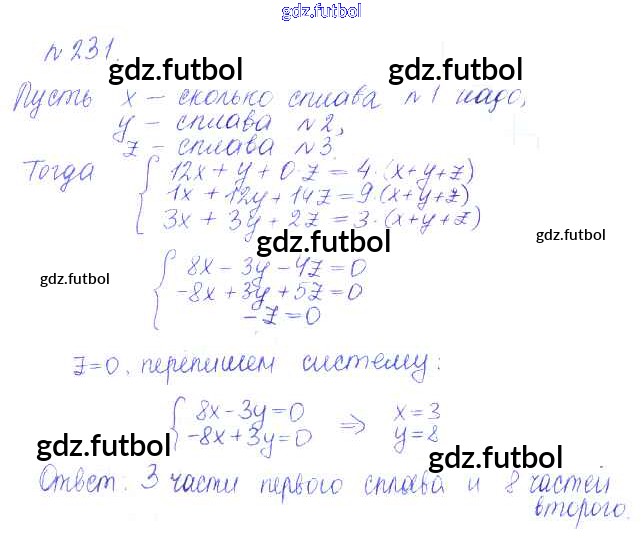 gdz.futbol
№ 231.
gdz.futbol gdz.futbol
Пусть x – сколько сплава №1 надо,
y – сплава №2,
z – сплава №3.
Тогда { 12x + y + 0·z = 4·(x+y+z)
1x + 12y + 14z = 9·(x+y+z)
3x + 3y + 2z = 3·(x+y+z)
gdz.futbol
gdz.futbol
gdz.futbol
{ 8x – 3y – 4z = 0
-8x + 3y + 5z = 0
– z = 0
z=0, перепишем систему:
{ 8x – 3y = 0 ⇒ x = 3
-8x + 3y = 0 y = 8
gdz.futbol gdz.futbol
Ответ: 3 части первого сплава и 8 частей
второго.